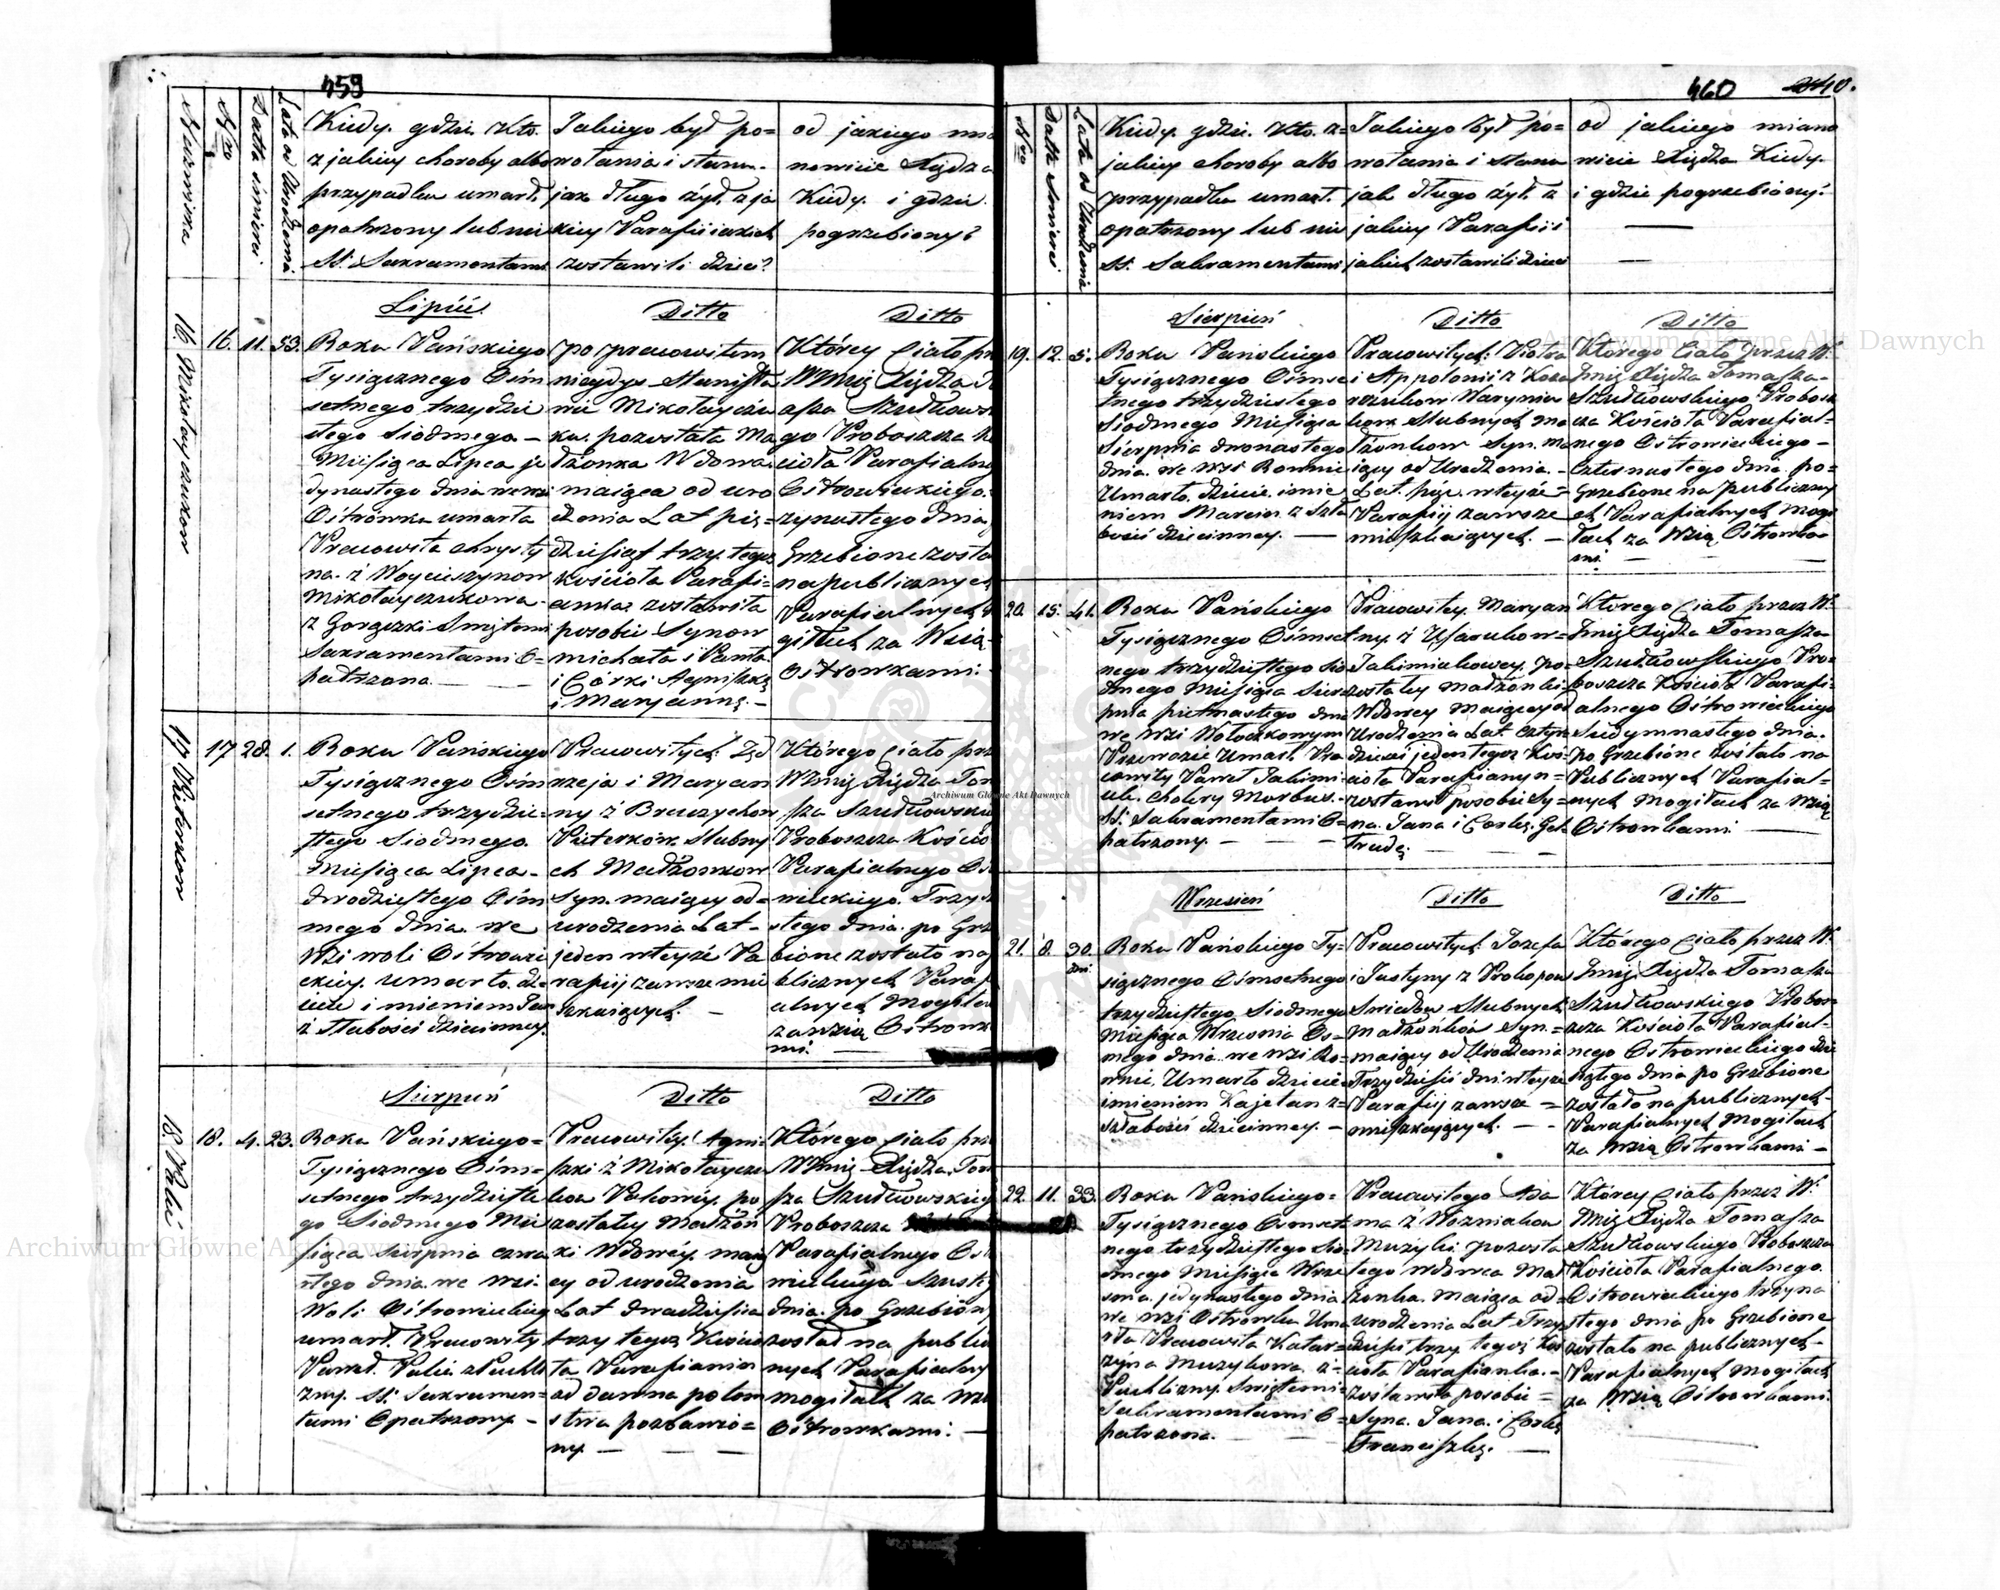 459
Nazwiska
Nro
Datta śmierci
Lata od Urodzenia
Kiedy. gdzie. Kto.
z jakiey choroby albo
przypadku umarł.
opatrzony lub nie
SS. Sakramentami
Jakiego był po=
wołania i stanu.
jak długo żył. z ja
kiey Parafii i jakich
zostawił dzieci?
od jakiego mia
nowicie Xiędza
Kiedy. i gdzie.
pogrzebiony?
16. Mikołayczukow
Lipiec.
Ditto
Ditto
16. 11. 53.
Roku Pańskiego
Tysiącznego Ośm
setnego trzydzie
stego Siódmego –
Miesiąca Lipca je
dynastego dnia we wsi
Ostrówku umarła
Pracowita Chrysty
na. z Woyciszynow
Mikołayczukowa
z Gorączki Świętemi
Sakramentami O=
patrzona
po pracowitem
niegdys Stanisła
wie Mikołayczu
ku. pozostała Ma
łżonka Wdowa
maiąca od uro
dzenia Lat pię=
dziesiąt trzy. tegoż
kościoła Parafi=
anka zostawiła
posobie Synow
michała i Pawła
i Córki Agniszkę
i Maryannę. –
Którey Ciało prz
Wmię Xiędza
asza Szudkows
go Proboszcza K
cioła Parafialne
Ostrowieckiego.
zynastego dnia
Grzebione zosta
na publicznych
Parafialnych
giłach za Wsią
Ostrowkami.
17 Pieterkow
17 28. 1.
Roku Pańskiego
Tysiącznego Ośm
setnego trzydzie=
stego Siodmego.
Miesiąca Lipca
dwodziestego Ośm
mego dnia. we
wsi woli Ostrowie
ckiey. umarło. dzie
cie i mieniem Jan
z słabości dziecinney.
Pracowitych Ję
rzeja i Maryan
ny z Breczychow
Pieterkow. Slubny
ch Małżonkow
Syn. maiący od=
urodzenia Lat –
jeden wteyże Pa
rafiy zawsze mie
szkaiących. –
Którego Ciało prz
Wmię Xiędza Tom
sza Szudkowskie
Proboszcza Koscio
Parafialnego Os
wieckiego. Trzydz
stego dnia. po Grz
bione zostało na
blicznych Paraf
alnych Mogiła
za wsią Ostrowk
mi.
18. Palii
Sierpień
Ditto
Ditto
18. 4. 23.
Roku Pańskiego=
Tysiącznego Ośm=
setnego trzydzieste
go Siodmego Mie
siąca Sierpnia czwa
rtego dnia. we wsi.
Woli Ostrowieckiey
umarł. Pracowity
Paweł. Palii. z Puchli
zny. SS. Sakramen=
tami Opatrzony. –
Pracowitey Agni=
szki z Mikołaycza
kow Paliowey. po
zostałey Małżon
ki Wdowey. maią
cy od urodzenia
Lat dwadzieścia
trzy tegoż Koscio
ła Parafianin
od dawna polow
stwa pozbawio=
ny
Którego Ciało prz
Wmię Xiędza. Tom
sza Szudkowskieg
Proboszcza
Parafialnego Os
wieckiego Szust
dnia. po Grzebion
został na publi
cznych Parafialny
mogiłach za wsi
Ostrowkami. –
460
Nro
Datta Smierci
Lata od Urodzenia
Kiedy. gdzie. Kto. z=
jakiey choroby albo
przypadku umarł.
opatrzony lub nie
SS. Sakramentami
Jakiego był po=
wołania i stanu
jak długo żył. z
jakiey Parafii i
jakich zostawił dzieci
od jakiego miano
wicie Xiędza Kiedy.
i gdzie pogrzebiony?
Sierpień
Ditto
Ditto
19. 12. 5.
Roku Pańskiego
Tysiącznego Ośmse
tnego trzydziestego
Siodmego Miesiąca
Sierpnia dwonastego
dnia. we Wsi Rownie
Umarło. dziecie. imie
niem Marcin. z Sła
bości dziecinney. –
Pracowitych: Piotra
i Appolonii z Koza
rzuków Maryniu
kow. Slubnych Ma
łżonkow Syn. ma
iący od Urodzenia. –
Lat. pięc. wteyże=
Parafiy zawsze
mieszkaiących. –
Ktorego Ciało przez W.
Jmię Xiędza Tomasza
Szudkowskiego Probosz
cza Kościoła Parafial=
nego Ostrowieckiego –
Czternastego dnia. po=
Grzebione na publiczny
ch Parafialnych Mogi
łach za Wsią Ostrowka
mi.
20. 15. 41.
Roku Pańskiego
Tysiącznego Ośmset
nego trzydziestego Sio
dmego Miesiąca Sier
pnia pietnastego dnia
we Wsi Wołoczkowym
Przewozie Umarł. Pra
cowity Paweł Jakimi
uk. Cholery Morbus.
SS. Sakramentami O=
patrzony.
Pracowitey. Maryan
ny. z Usarukow=
Jakimiukowey. po=
zostałey Małżonki
Wdowey Maiący od
Urodzenia Lat. czter
dzieści jeden tegoż Koś
cioła Parafianyn=
zostawił posobie Sy=
na. Jana i Corkę. Gel
trudę.
Ktorego Ciało przez W.
Jmię Xiędza Tomasza
Szudkowskiego Pro=
boszcza Kościoła Parafi=
alnego Ostrowieckiego
Siedymnastego dnia.
po Grzebione zostało na
Publicznych Parafial=
nych Mogiłach za Wsią
Ostrowkami.
Wrzesień
Ditto
Ditto
21. 8. 30.
dni.
Roku Pańskiego Ty=
siącznego Ośmsetnego
trzydziestego Siodmego
Miesiąca Wrzesnia Os=
mego dnia. we wsi Ro=
wnie. Umarło dziecie
imieniem Kajetan z=
Słabości dziecinney. –
Pracowitych. Jozefa
i Justyny z Prokopow
Smiadow Slubnych
Małżonkow Syn.=
maiący od Urodzenia
Trzydzieści dni wteyże
Parafiy zawsze =
mieszkaiących. –
Którego Ciało przez W.
Jmię Xiędza Tomasza
Szudkowskiego Probosz=
cza Kościoła Parafial=
nego Ostrowieckiego dzie
siątego dnia po Grzebione
zostało na publicznych=
Parafialnych Mogiłach
za wsią Ostrowkami –
22. 11. 33.
Roku Pańskiego=
Tysiącznego Osmset
nego trzydziestego Sio
dmego Miesiąca Wrze
snia. jedynastego dnia
we wsi Ostrowku Uma
rła Pracowita Katar=
zyna Muzykowa. z=
Puchlizny. Swiętemi=
Sakramentami O=
patrzona.
Pracowitego Ada
ma z Wozniakow
Muzyki pozosta
łego wdowca Mał
żonka. Maiąca od=
urodzenia Lat Trzy
dzieści trzy tegoż Koś
cioła Parafianka. –
zostawiła posobie =
Syna. Jana. i Corkę
Franciszkę.
Którey Ciało przez W.
Jmię Xiędza Tomasza
Szudkowskiego Proboszcza
Kościoła Parafialnego.
Ostrowieckiego trzyna
stego dnia po Grzebione
zostało na publicznych=
Parafialnych Mogiłach
za Wsią Ostrowkami.
Archiwum Główne Akt Dawnych
Archiwum Główne Akt Dawnych
Archiwum Główne Akt Dawnych